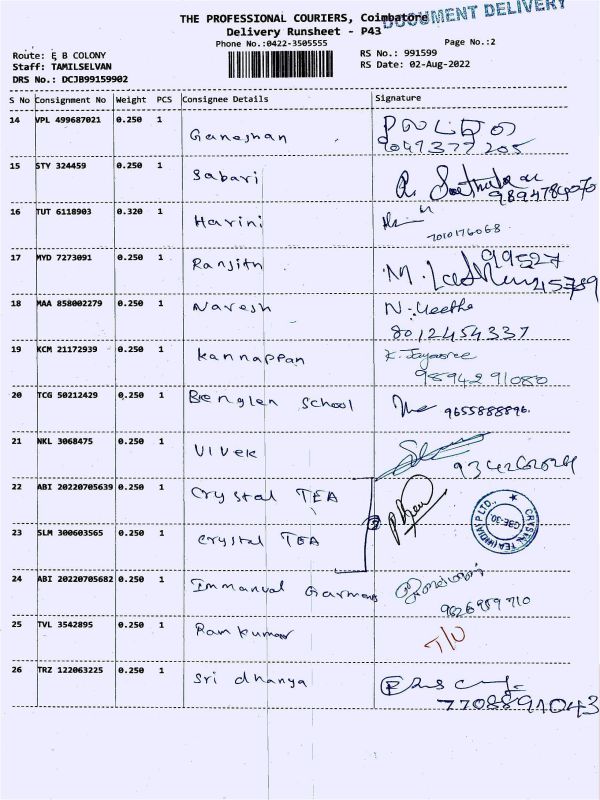 THE PROFESSIONAL COURIERS, Coimbatore
DOCUMENT DELIVERY
Delivery Runsheet - P43
Phone No.:0422-3505555
Page No.:2
Route: E B COLONY
RS No.: 991599
Staff: TAMILSELVAN
RS Date: 02-Aug-2022
DRS No.: DCJB99159902
S No Consignment No Weight PCS Consignee Details Signature
14 VPL 499687021 0.250 1 Ganeshan
9049377205
15 STY 324459 0.250 1 Sabari
9894784070
16 TUT 6118903 0.320 1 Harini
7010176068
17 MYD 7273091 0.250 1 Ranjith
99527
45789
18 MAA 858002279 0.250 1 Naresh N. Geetha
8012454337
19 KCM 21172939 0.250 1 Kannappan K. Jayasree
9894291080
20 TCG 50212429 0.250 1 Benglen School 9655888896.
21 NKL 3068475 0.250 1 Vivek
22 ABI 20220705639 0.250 1 Crystal TEA
CRYSTAL TEA (INDIA) P LTD.,
CBE-30
23 SLM 300603565 0.250 1 Crystal TEA
24 ABI 20220705682 0.250 1 Immanual Garmens
9626989710
25 TVL 3542895 0.250 1 Ramkumar T/U
26 TRZ 122063225 0.250 1 Sri dhanya
7708891043